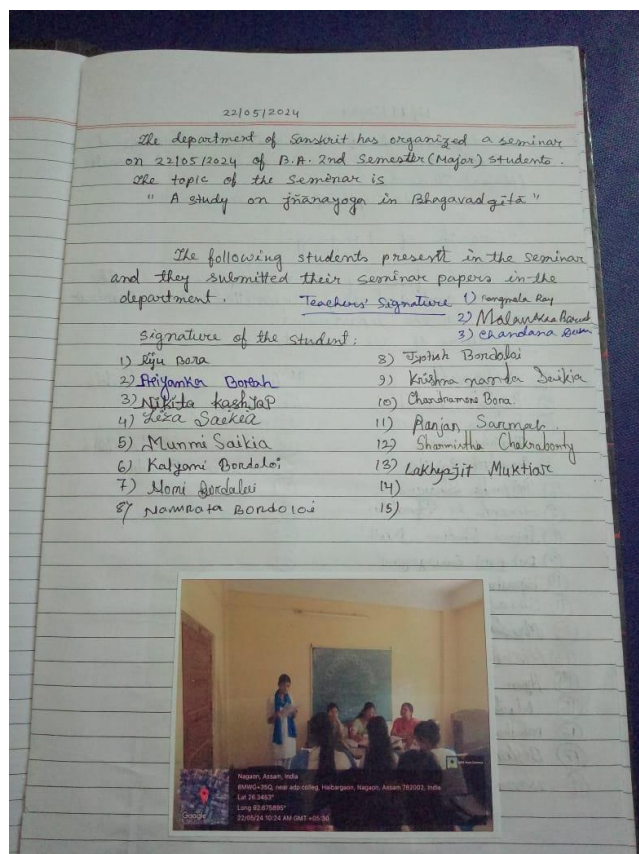 22/05/2024
The department of Sanskrit has organized a seminar
on 22/05/2024 of B.A. 2nd Semester (Major) students.
The topic of the Seminar is
" A study on jñanayoga in Bhagavadgītā "
The following students present in the seminar
and they submitted their seminar papers in the
department.
Teachers' Signature 1) Ray
2)
3) Chandana
Signature of the student:
1) Bora
2) Priyanka Borah
3) Nikita Kashyap
4) Liza Saikia
5) Munmi Saikia
6) Kalyani Bordoloi
7) Momi Bordaloi
8) Namrata Bordoloi
8) Jyotish Bordaloi
9) Krishna nanda Saikia
10) Chandramoni Bora.
11) Ranjan Sarmah
12) Sharmistha Chakraborty
13) Lakhyajit Muktiar
14)
15)
Nagaon, Assam, India
8MWG+35Q, near adp colleg, Haibargaon, Nagaon, Assam 782002, India
Lat 26.3453°
Long 92.675895°
22/05/24 10:24 AM GMT +05:30
Google